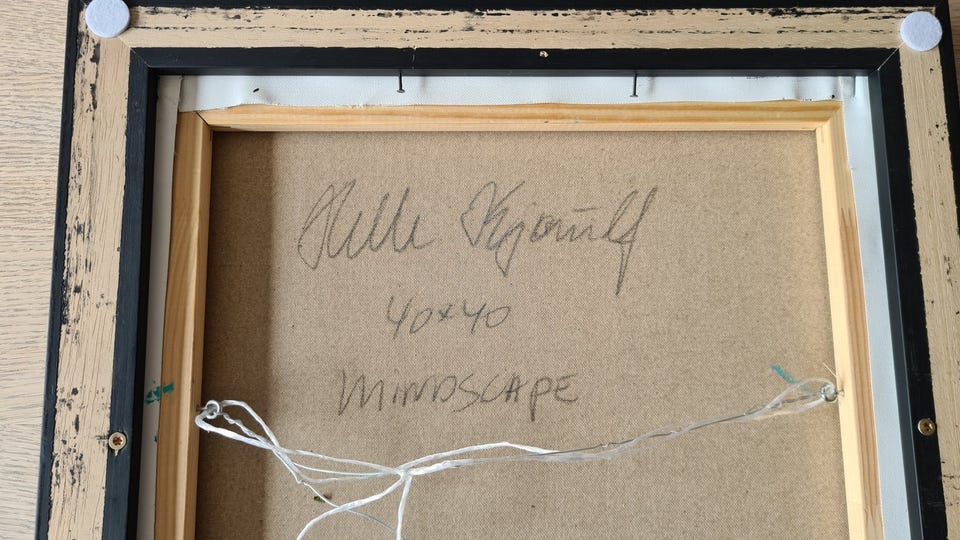 Helle Kjærulf
40x40
MINDSCAPE